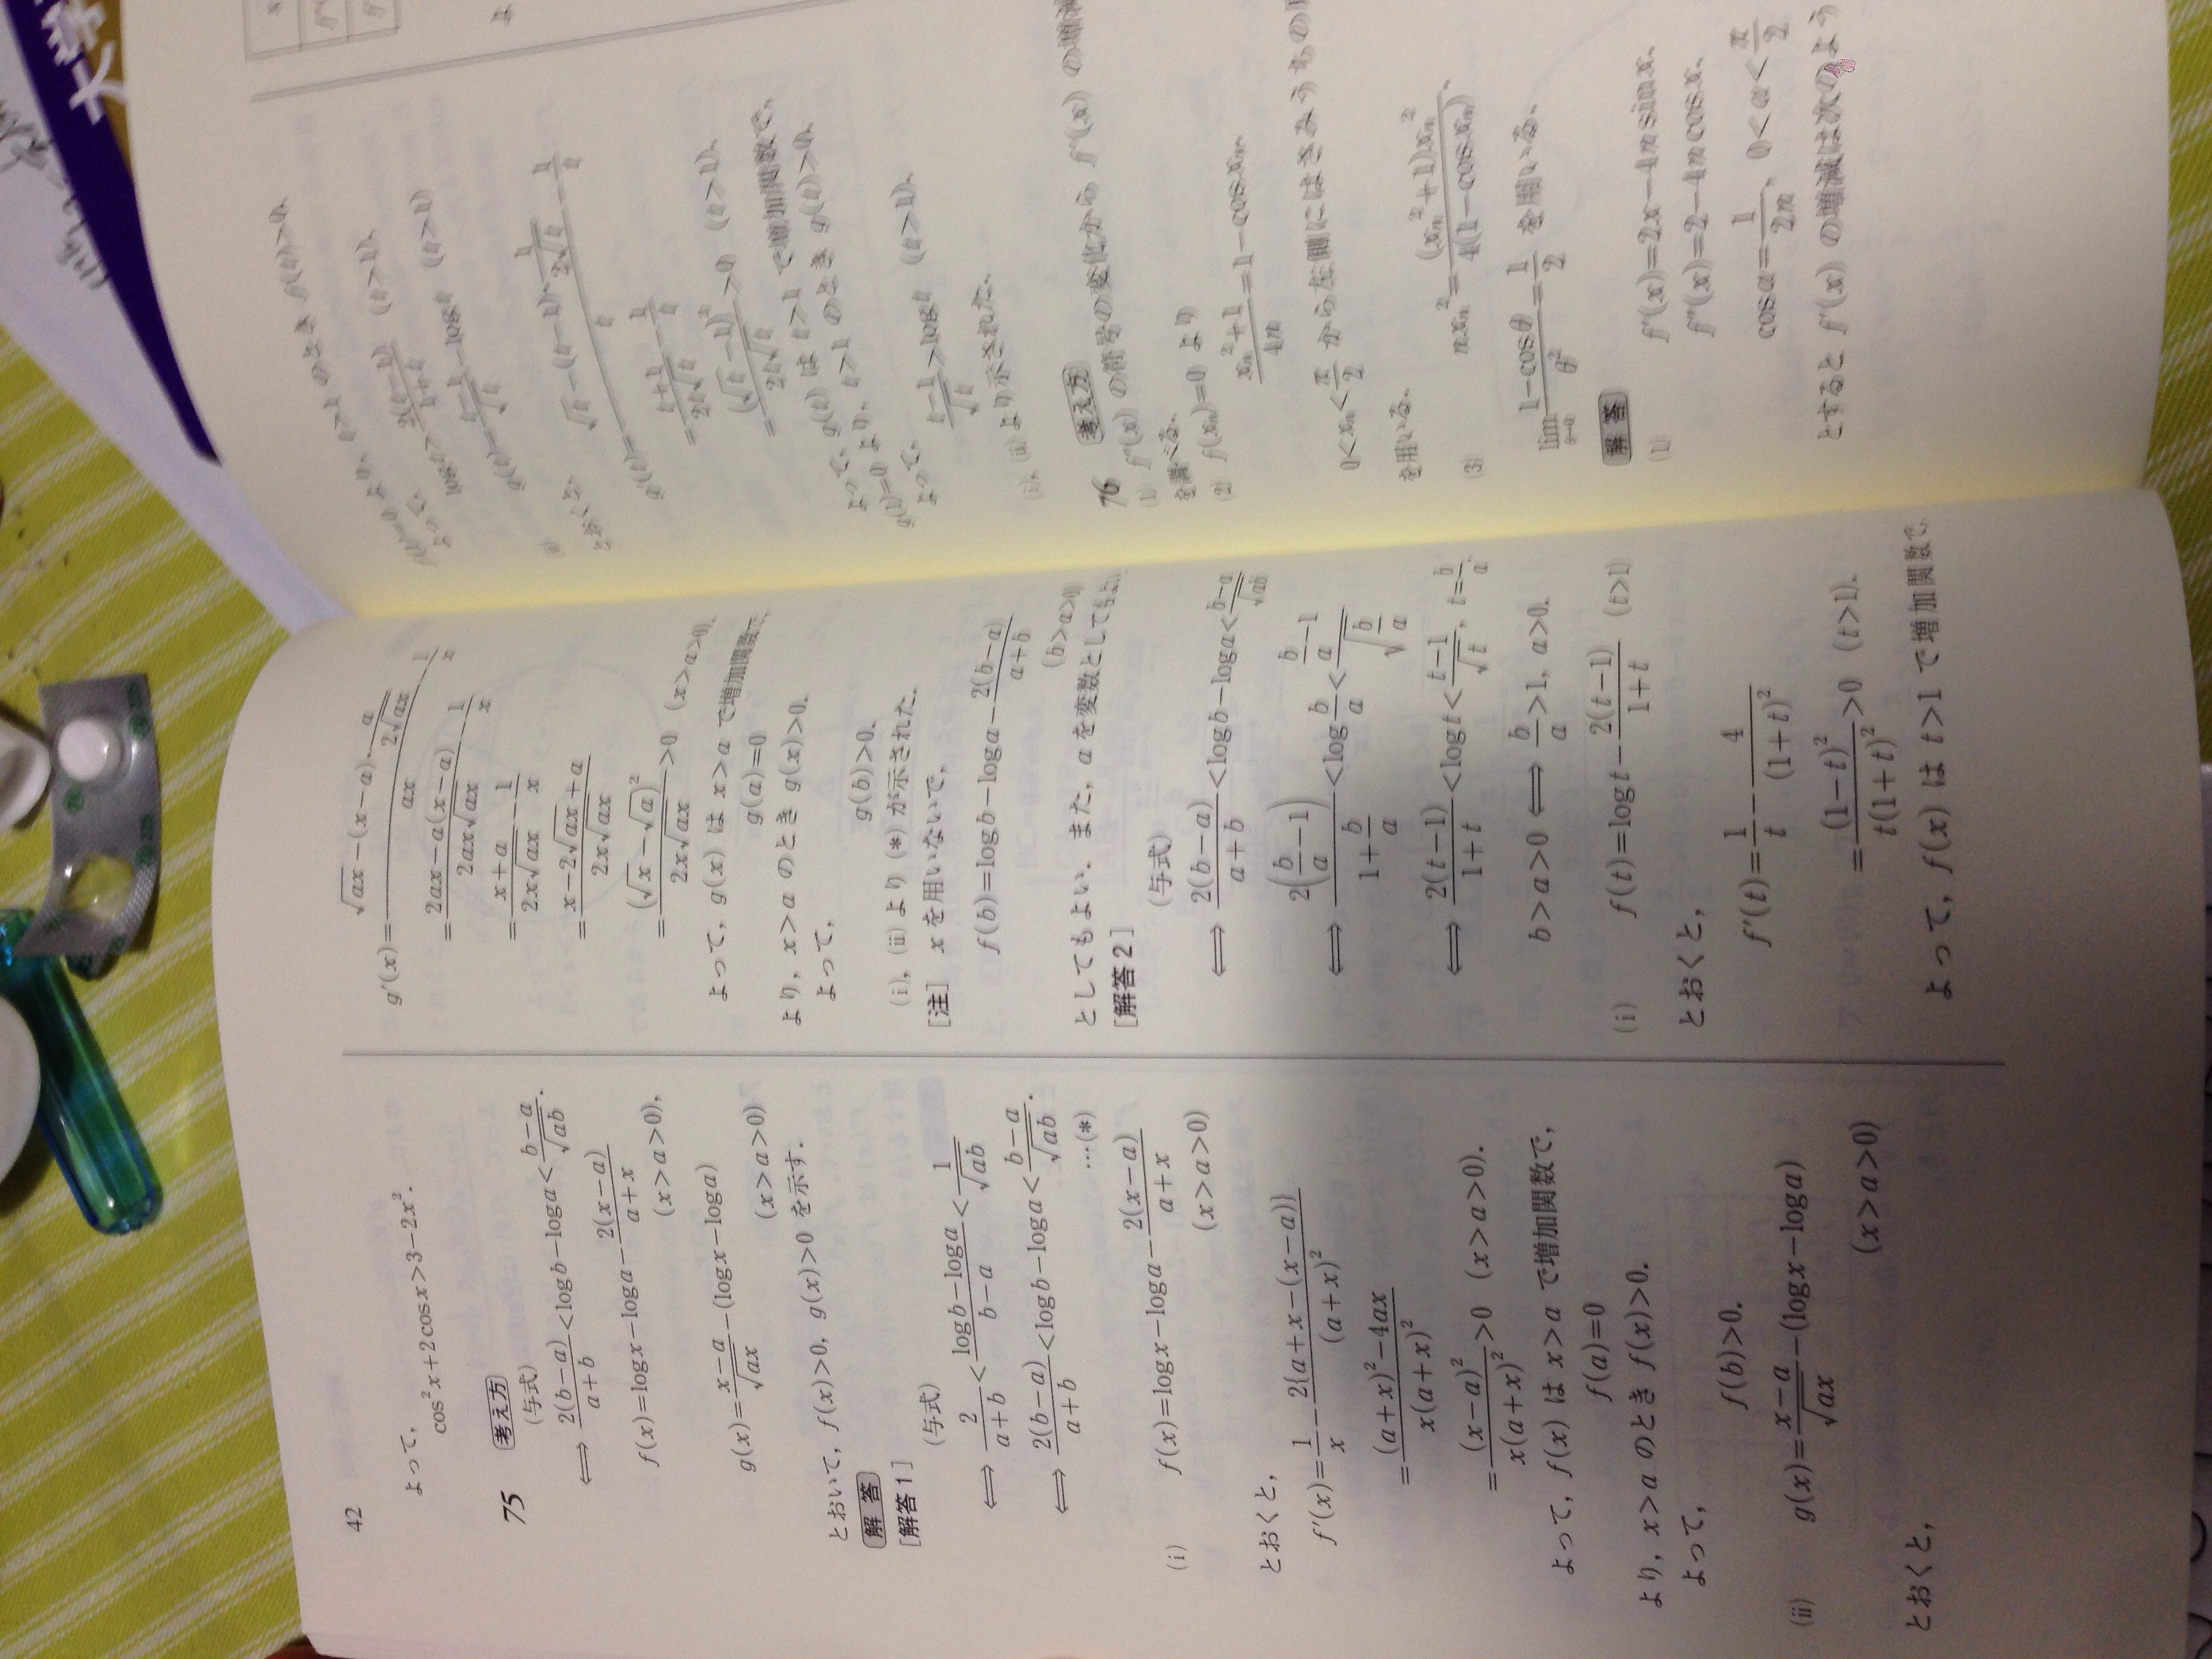 42
よって，
cos²x+2cosx>3-2x².
75
考え方
(与式)
⟺ 2(b-a)/(a+b)<logb-loga<(b-a)/√(ab).
f(x)=logx-loga-2(x-a)/(a+x)
(x>a>0),
g(x)=(x-a)/√(ax)-(logx-loga)
(x>a>0)
とおいて，f(x)>0，g(x)>0 を示す．
解答
[解答1]
(与式)
⟺ 2/(a+b)<(logb-loga)/(b-a)<1/√(ab)
⟺ 2(b-a)/(a+b)<logb-loga<(b-a)/√(ab).
…(*)
(i) f(x)=logx-loga-2(x-a)/(a+x)
(x>a>0)
とおくと，
f'(x)=1/x-2{a+x-(x-a)}/(a+x)²
=((a+x)²-4ax)/(x(a+x)²)
=(x-a)²/(x(a+x)²)>0 (x>a>0).
よって，f(x) は x>a で増加関数で，
f(a)=0
より，x>a のとき f(x)>0.
よって，
f(b)>0.
(ii) g(x)=(x-a)/√(ax)-(logx-loga)
(x>a>0)
とおくと，
g'(x)=(√(ax)-(x-a)·a/(2√(ax)))/(ax)-1/x
=(2ax-a(x-a))/(2ax√(ax))-1/x
=(x+a)/(2x√(ax))-1/x
=(x-2√(ax)+a)/(2x√(ax))
=(√x-√a)²/(2x√(ax))>0 (x>a>0).
よって，g(x) は x>a で増加関数で，
g(a)=0
より，x>a のとき g(x)>0.
よって，
g(b)>0.
(i)，(ii) より (*) が示された．
[注] x を用いないで，
f(b)=logb-loga-2(b-a)/(a+b)
(b>a>0)
としてもよい．また，a を変数としてもよい
[解答2]
(与式)
⟺ 2(b-a)/(a+b)<logb-loga<(b-a)/√(ab)
⟺ 2(b/a-1)/(1+b/a)<log b/a<(b/a-1)/√(b/a)
⟺ 2(t-1)/(1+t)<logt<(t-1)/√t, t=b/a.
b>a>0 ⟺ b/a>1, a>0.
(i) f(t)=logt-2(t-1)/(1+t) (t>1)
とおくと，
f'(t)=1/t-4/(1+t)²
=(1-t)²/(t(1+t)²)>0 (t>1).
よって，f(x) は t>1 で増加関数で，
f(1)=0 より，t>1 のとき f(t)>0.
よって，
logt>2(t-1)/(1+t) (t>1).
g(t)=(t-1)/√t-logt (t>1)
とおくと，
g'(t)=(√t-(t-1)·1/(2√t))/t-1/t
=(t+1)/(2t√t)-1/t
=(√t-1)²/(2t√t)>0 (t>1).
よって，g(t) は t>1 で増加関数で，
g(1)=0 より，t>1 のとき g(t)>0.
よって，
(t-1)/√t>logt (t>1).
(i)，(ii) より示された．
76
考え方
(1) f''(x) の符号の変化から f'(x) の増減
を調べる．
(2) f(xₙ)=0 より
(xₙ²+1)/4n=1-cosxₙ.
0<xₙ<π/2 から左側にはさみうちの
を用いる．
(3) nxₙ²=(xₙ²+1)xₙ²/(4(1-cosxₙ)),
lim (1-cosθ)/θ²=1/2 を用いる．
解答
(1) f'(x)=2x-4nsinx.
f''(x)=2-4ncosx.
cosα=1/2n, 0<α<π/2
とすると f'(x) の増減は次のよう
大学